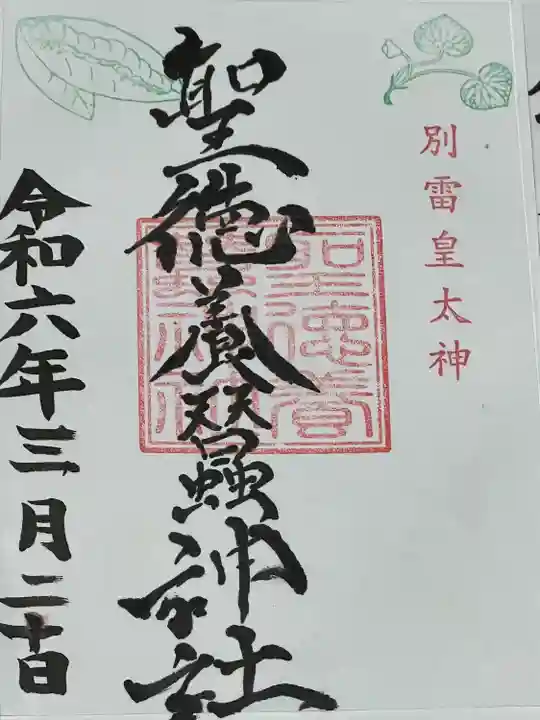 別雷皇太神
聖徳養蠶神社
令和六年三月二十日